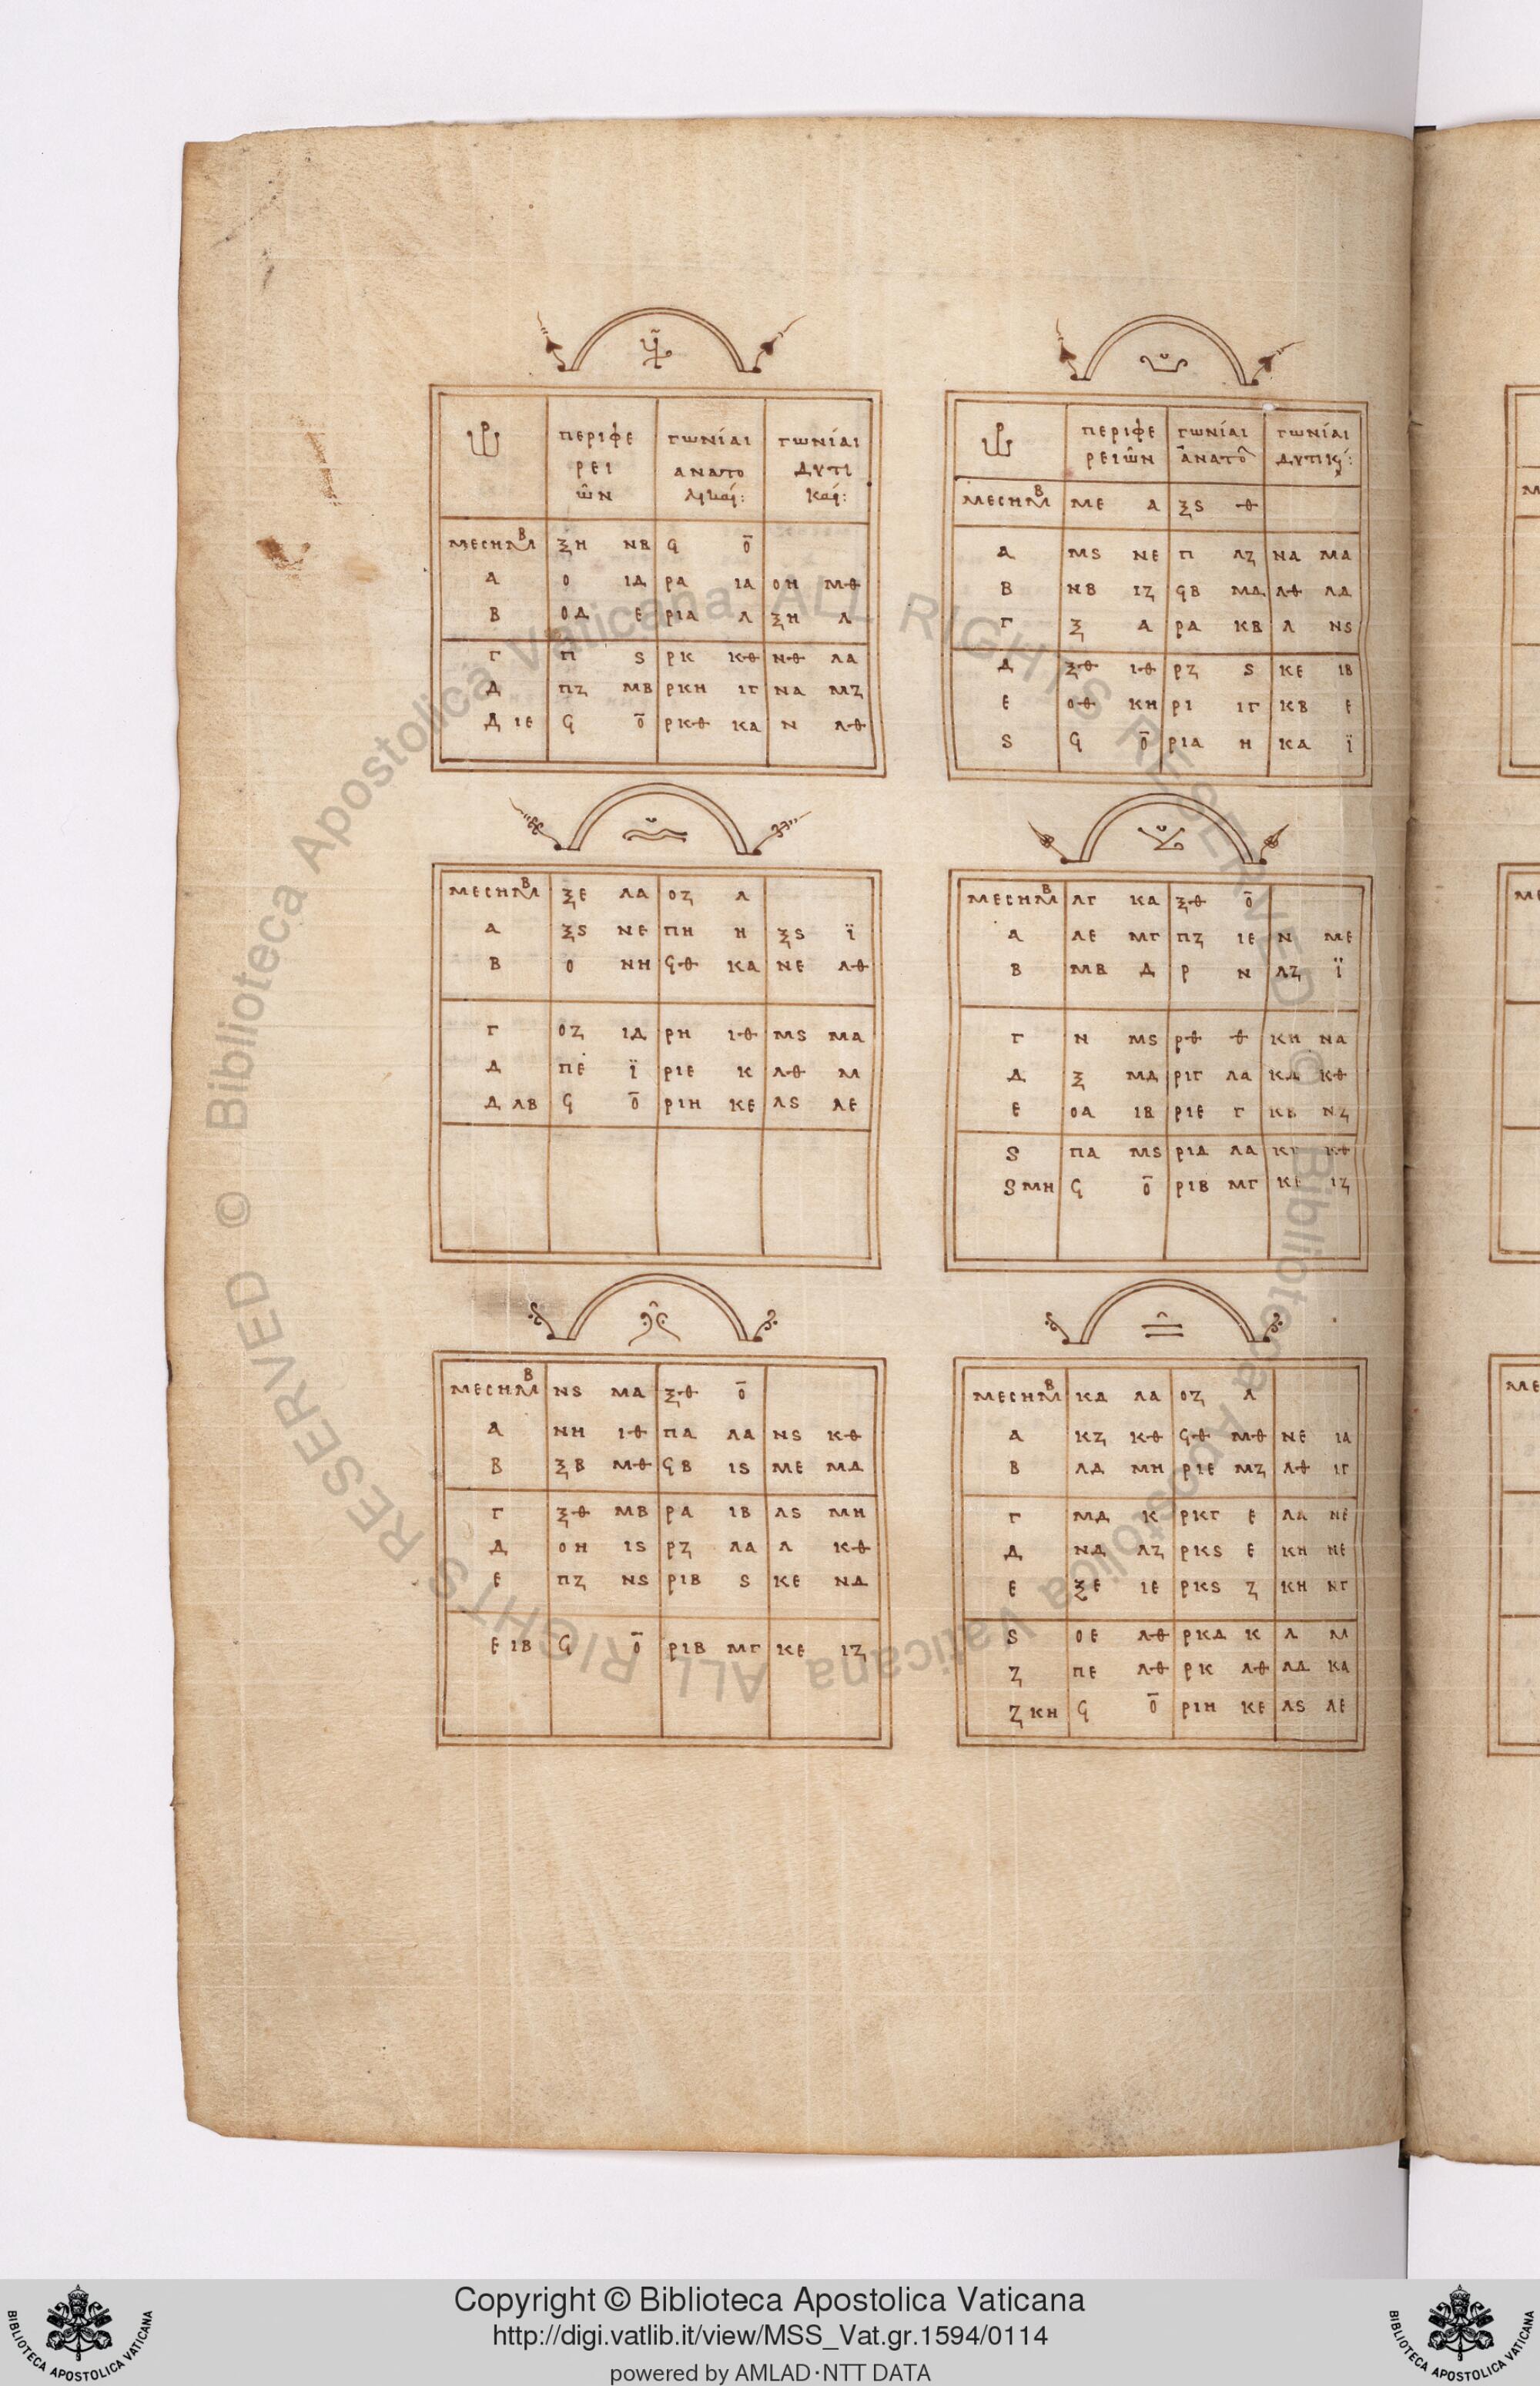 ΠΕΡΙΦΕ ΓΩΝΊΑΙ ΓΩΝΊΑΙ
ΡΕΙ ΑΝΑΤΟ ΔΥΤΙ
ῶΝ ΛΙΚΑΊ: ΚΑΊ:
ΜΕCΗΜΒ ΞΗ ΝΒ Ϙ ο̅
Α Ο ΙΔ ΡΑ ΙΑ ΟΗ ΜΘ
Β ΟΔ Ε ΡΙΑ Λ ΞΗ Λ
Γ Π Ϛ ΡΚ ΚΘ ΝΘ ΛΑ
Δ ΠΖ ΜΒ ΡΚΗ ΙΓ ΝΑ ΜΖ
Δ ΙΕ Ϙ ο̅ ΡΚΘ ΚΑ Ν ΛΘ
ΠΕΡΙΦΕ ΓΩΝΊΑΙ ΓΩΝΊΑΙ
ΡΕΙῶΝ ἈΝΑΤΟ ΔΥΤΙΚ:
ΜΕCΗΜΒ ΜΕ Α ΞϚ Θ
Α ΜϚ ΝΕ Π ΛΖ ΝΑ ΜΑ
Β ΝΒ ΙΖ ϘΒ ΜΔ ΛΘ ΛΔ
Γ Ξ Α ΡΑ ΚΒ Λ ΝϚ
Δ ΞΘ ΙΘ ΡΖ Ϛ ΚΕ ΙΒ
Ε ΟΘ ΚΗ ΡΙ ΙΓ ΚΒ Ε
Ϛ Ϙ ο̅ ΡΙΑ Η ΚΑ Ϊ
ΜΕCΗΜΒ ΞΕ ΛΑ ΟΖ Λ
Α ΞϚ ΝΕ ΠΗ Η ΞϚ Ϊ
Β Ο ΝΗ ϘΘ ΚΑ ΝΕ ΛΘ
Γ ΟΖ ΙΔ ΡΗ ΙΘ ΜϚ ΜΑ
Δ ΠΕ Ϊ ΡΙΕ Κ ΛΘ Μ
Δ ΛΒ Ϙ ο̅ ΡΙΗ ΚΕ ΛϚ ΛΕ
ΜΕCΗΜΒ ΛΓ ΚΑ ΞΘ ο̅
Α ΛΕ ΜΓ ΠΖ ΙΕ Ν ΜΕ
Β ΜΒ Δ Ρ Ν ΛΖ Ϊ
Γ Ν ΜϚ ΡΘ Θ ΚΗ ΝΑ
Δ Ξ ΜΔ ΡΙΓ ΛΑ ΚΔ ΚΘ
Ε ΟΑ ΙΒ ΡΙΕ Γ ΚΒ ΝΖ
Ϛ ΠΑ ΜϚ ΡΙΔ ΛΑ ΚΓ ΚΘ
Ϛ ΜΗ Ϙ ο̅ ΡΙΒ ΜΓ ΚΕ ΙΖ
ΜΕCΗΜΒ ΝϚ ΜΑ ΞΘ ο̅
Α ΝΗ ΙΘ ΠΑ ΛΑ ΝϚ ΚΘ
Β ΞΒ ΜΘ ϘΒ ΙϚ ΜΕ ΜΔ
Γ ΞΘ ΜΒ ΡΑ ΙΒ ΛϚ ΜΗ
Δ ΟΗ ΙϚ ΡΖ ΛΑ Λ ΚΘ
Ε ΠΖ ΝϚ ΡΙΒ Ϛ ΚΕ ΝΔ
Ε ΙΒ Ϙ ο̅ ΡΙΒ ΜΓ ΚΕ ΙΖ
ΜΕCΗΜΒ ΚΔ ΛΑ ΟΖ Λ
Α ΚΖ ΚΘ ϘΘ ΜΘ ΝΕ ΙΑ
Β ΛΔ ΜΗ ΡΙΕ ΜΖ ΛΘ ΙΓ
Γ ΜΔ Κ ΡΚΓ Ε ΛΑ ΝΕ
Δ ΝΔ ΛΖ ΡΚϚ Ε ΚΗ ΝΕ
Ε ΞΕ ΙΕ ΡΚϚ Ζ ΚΗ ΝΓ
Ϛ ΟΕ ΛΘ ΡΚΔ Κ Λ Μ
Ζ ΠΕ ΛΘ ΡΚ ΛΘ ΛΔ ΚΑ
Ζ ΚΗ Ϙ ο̅ ΡΙΗ ΚΕ ΛϚ ΛΕ
© Biblioteca Apostolica Vaticana ALL RIGHTS RESERVED © Biblioteca Apostolica Vaticana ALL RIGHTS RESERVED
Copyright © Biblioteca Apostolica Vaticana
http://digi.vatlib.it/view/MSS_Vat.gr.1594/0114
powered by AMLAD·NTT DATA
BIBLIOTECA APOSTOLICA VATICANA
BIBLIOTECA APOSTOLICA VATICANA